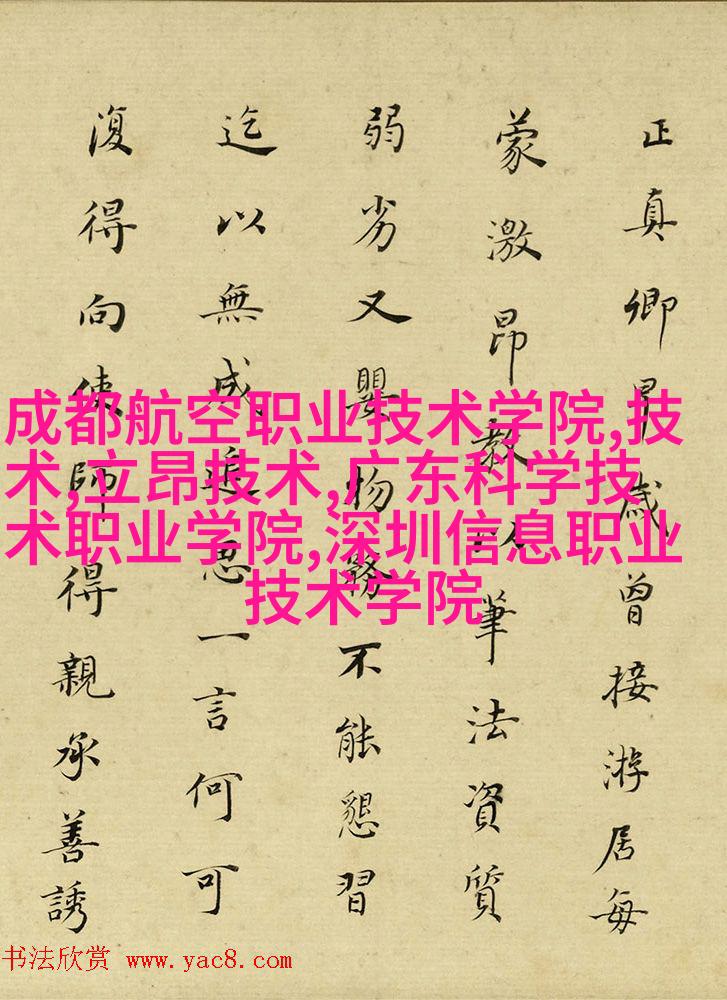 正真卿早歲曾接游居每
蒙激昂教以筆法資質
弱劣又嬰物務不能懇習
迄以無成追思一言何可
復得向使師得親承善誘
成都航空职业技术学院,技
术,立昂技术,广东科学技
术职业学院,深圳信息职业
技术学院
书法欣赏 www.yac8.com